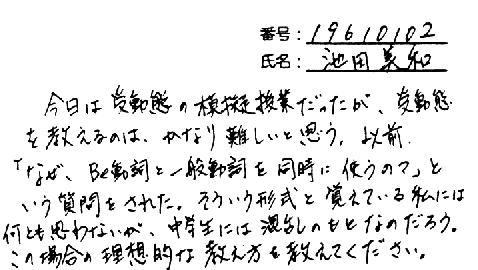 番号: 19610102
氏名: 池田美和
今日は受動態の模擬授業だったが、受動態
を教えるのは、かなり難しいと思う。以前
「なぜ、Be動詞と一般動詞を同時に使うの?」と
いう質問をされた。そういう形式と覚えている私には
何とも思わないが、中学生には混乱のもとなのだろう。
この場合の理想的な教え方を教えてください。